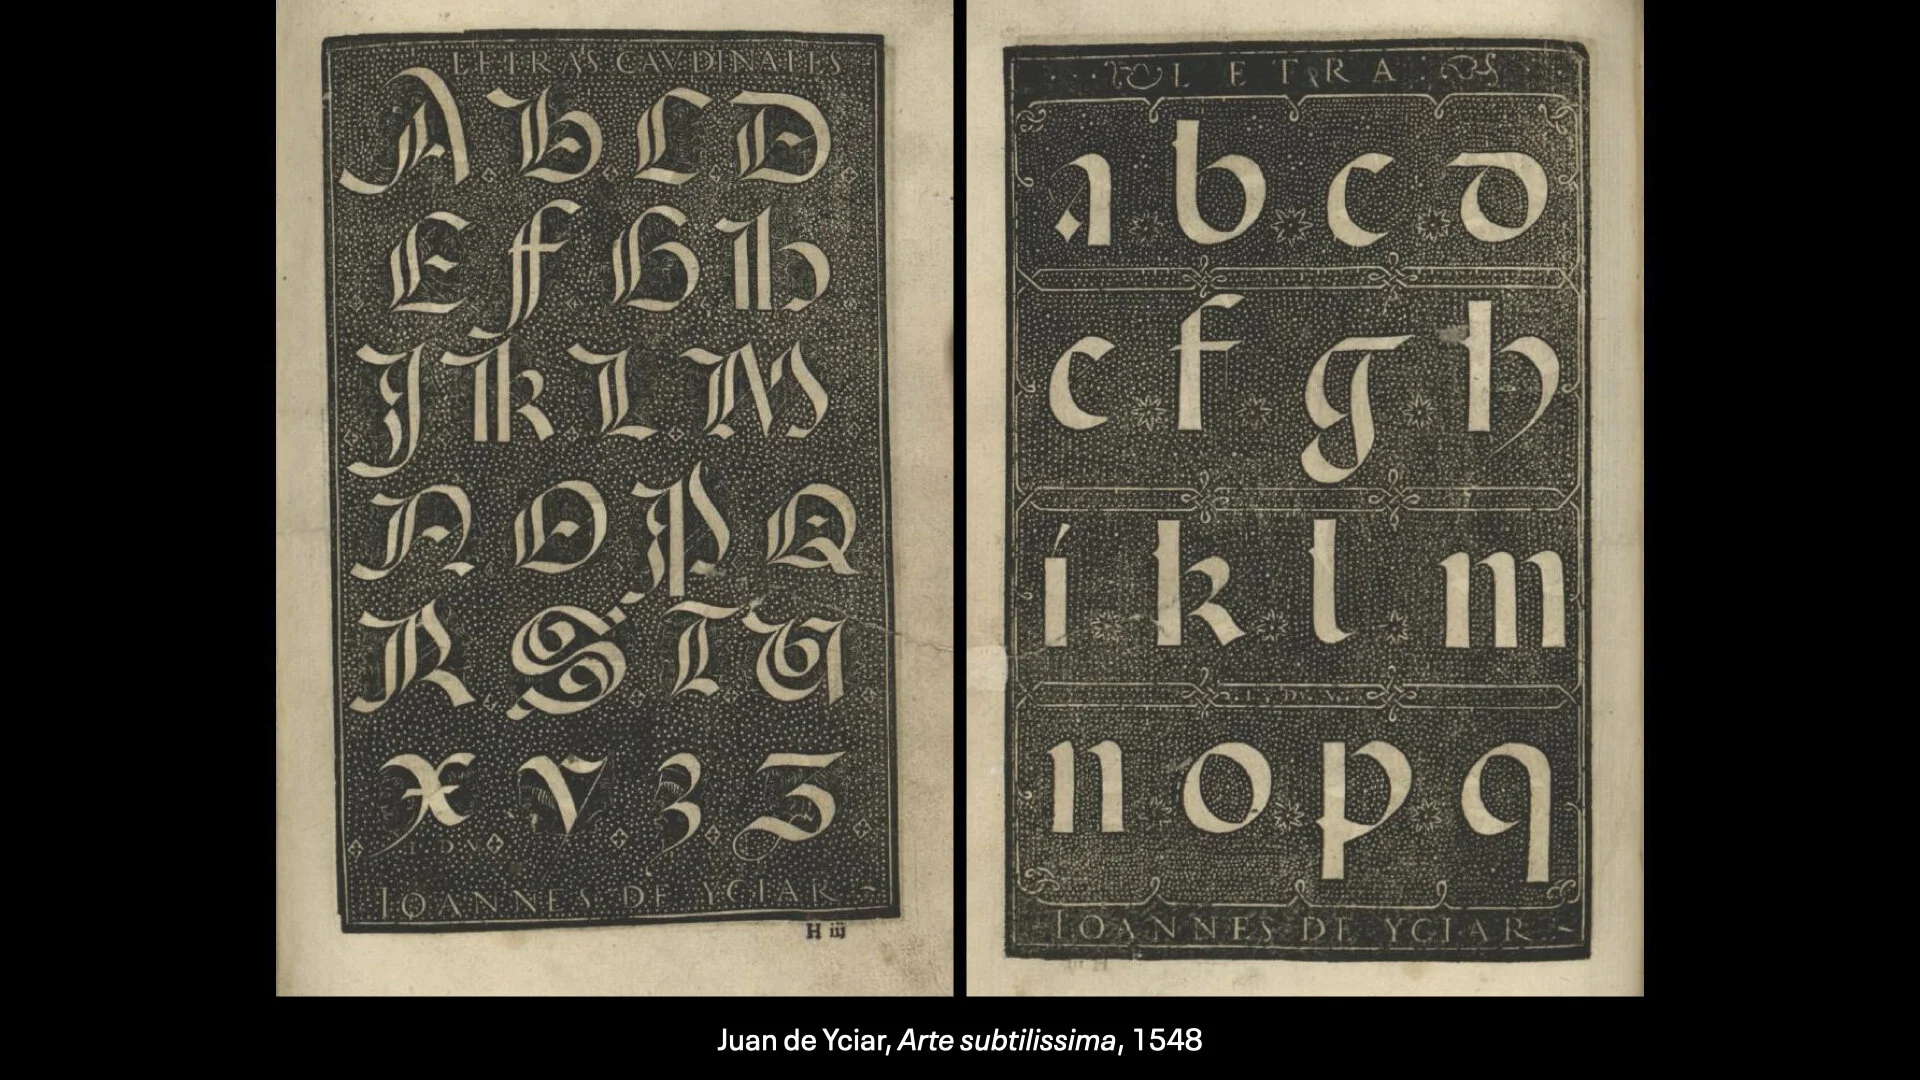 LETRAS CAVDINALES
A b C D
E f G h
J k L M
N O P Q
R S T V
X V 3 Z
I · D · V
IOANNES DE YCIAR
H iij
LETRA
a b c d
c f g h
í k l m
I · DV · V
n o p q
IOANNES DE YCIAR
Juan de Yciar, Arte subtilissima, 1548